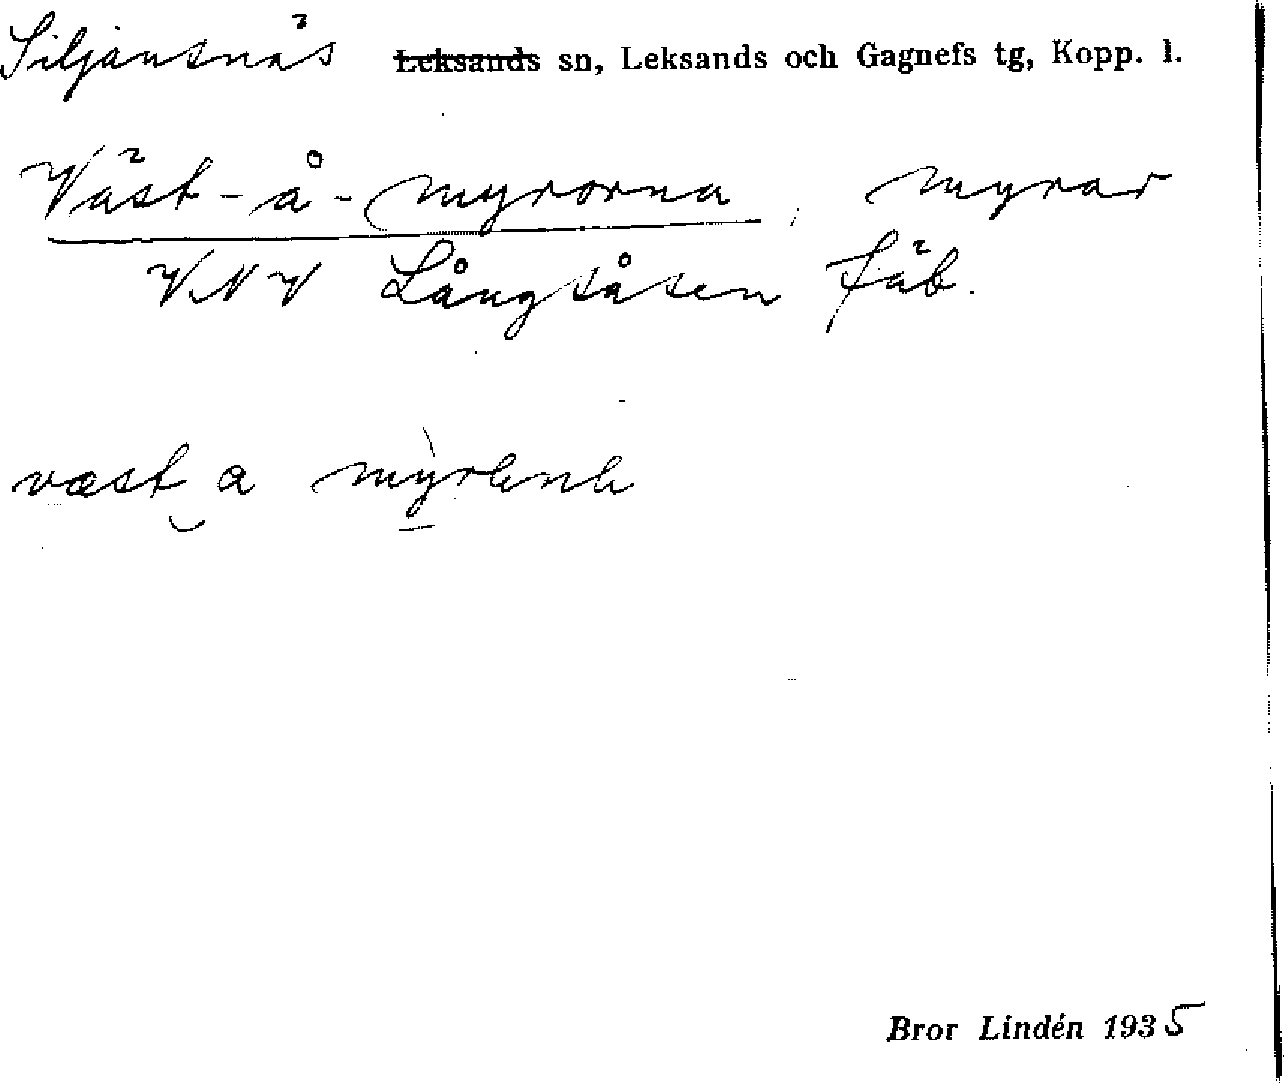 Siljansnäs Leksands sn, Leksands och Gagnefs tg, Kopp. l.
Väst-å-myrorna, myrar
VNV Långsåsen fäb.
væst a
Bror Lindén 1935